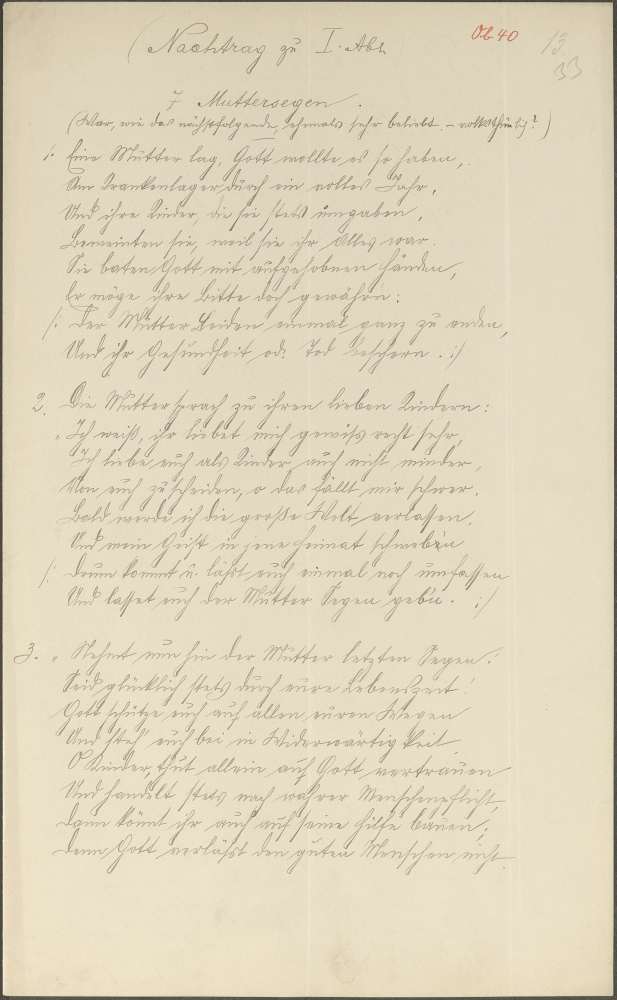 (Nachtrag zu I. Abt.
Ob 40
13
33
7 Muttersegen.
(War, wie das nächstfolgende, ehmals sehr beliebt. – volksthümlich?)
1. Eine Mutter lag, Gott wollte es so haben,
Am Krankenlager durch ein volles Jahr,
Und ihre Kinder, die sie stets umgaben,
Beweinten sie, weil sie ihr Alles war.
Sie baten Gott mit aufgehobnen Händen,
Er möge ihre Bitte doch gewährn:
/: Der Mutter Leiden einmal ganz zu enden,
Und ihr Gesundheit od. Tod beschern. :/
2. Die Mutter sprach zu ihren lieben Kindern:
„Ich weiß, ihr liebet mich gewiß recht sehr,
Ich liebe euch als Kinder auch nicht minder,
Von euch zu scheiden, o das fällt mir schwer.
Bald werde ich die große Welt verlassen,
Und mein Geist in jene Heimat schweb'n
/: Drum kommt u. laßt euch einmal noch umfassen
Und lasset euch der Mutter Segen geb'n. :/
3. „Nehmt nun hin der Mutter letzten Segen!
Seid glücklich stets durch eure Lebenszeit!
Gott schütze euch auf allen euren Wegen
Und steh' euch bei in Widerwärtigkeit
O Kinder, thut allein auf Gott vertrauen
Und handelt stets nach wahrer Menschenpflicht,
Dann könnt ihr auch auf seine Hilfe bauen;
Denn Gott verläßt den guten Menschen nicht.